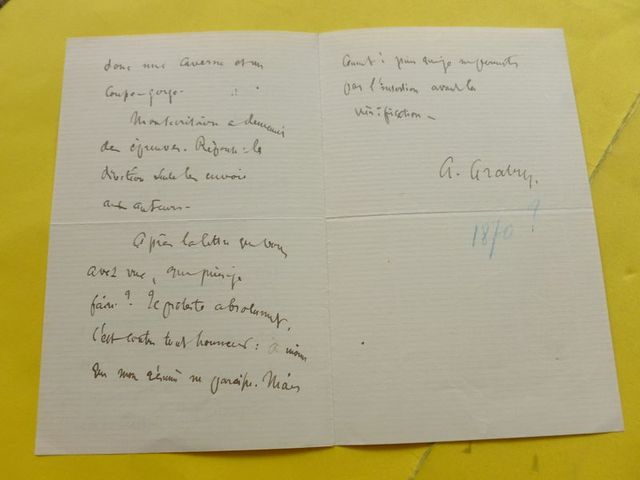 donc une caverne et un
coupe-gorge.
Mon écrivain a demandé
des épreuves. Réponse : la
direction seule les envoie
aux auteurs.
Après la lettre que vous
avez vue, que puis-je
faire ? Je proteste absolument,
c'est contre tout honneur : à moins
que mon gérant ne paraisse. Mais
puis que je ne
par l'insertion avant la
vérification.
A.
1870 ?